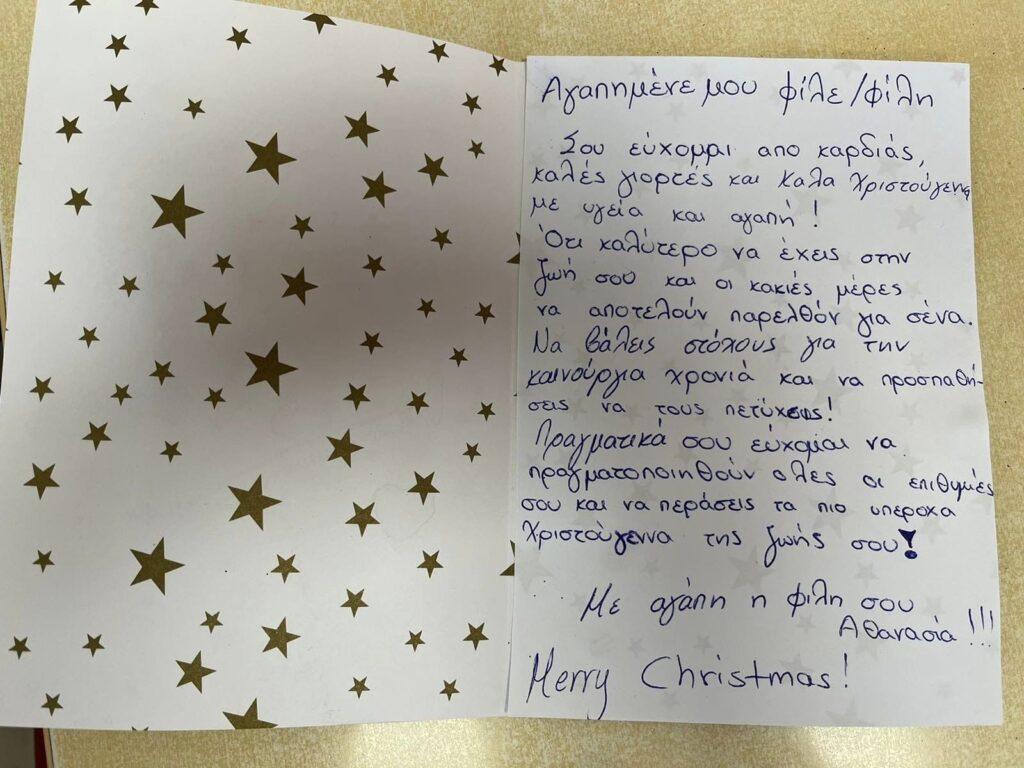 Αγαπημένε μου φίλε/φίλη
Σου εύχομαι απο καρδιάς,
καλές γιορτές και Καλα Χριστούγεννα
με υγεία και αγαπή!
Ότι καλύτερο να έχεις στην
ζωή σου και οι κακιές μέρες
να αποτελούν παρελθόν για σένα.
Να βάλεις στόχους για την
καινούργια χρονιά και να προσπαθή-
σεις να τους πετύχεις!
Πραγματικά σου εύχομαι να
πραγματοποιηθούν ολες οι επιθυμίες
σου και να περάσεις τα πιο υπεροχα
Χριστούγεννα της ζωής σου!
Με αγάπη η φιλη σου
Αθανασία!!!
Merry Christmas!